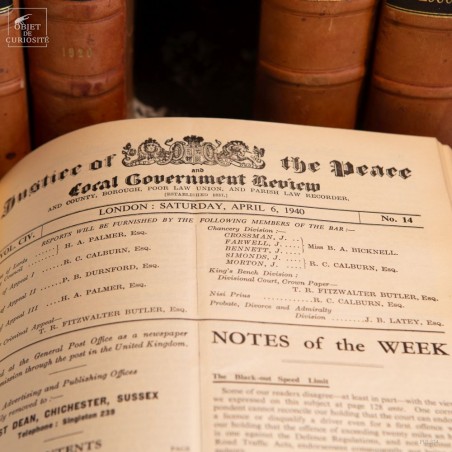 OBJET
DE
CURIOSITÉ
Justice of the Peace
and
Local Government Review
AND COUNTY, BOROUGH, POOR LAW UNION, AND PARISH LAW RECORDER,
(ESTABLISHED 1837.)
LONDON : SATURDAY, APRIL 6, 1940
No. 14
VOL. CIV.
REPORTS WILL BE FURNISHED BY THE FOLLOWING MEMBERS OF THE BAR :—
of Lords
B. A. PALMER, Esq.
of Appeal I
R. C. CALBURN, Esq.
of Appeal II
P. B. DURNFORD, Esq.
of Appeal III
H. A. PALMER, Esq.
Criminal Appeal—
T. R. FITZWALTER BUTLER, Esq.
Chancery Division :—
CROSSMAN, J.
FARWELL, J.
BENNETT, J.
Miss B. A. BICKNELL.
SIMONDS, J.
MORTON, J.
R. C. CALBURN, Esq.
King's Bench Division :
Divisional Court, Crown Paper—
T. R. FITZWALTER BUTLER, Esq.
Nisi Prius
R. C. CALBURN, Esq.
Probate, Divorce and Admiralty
Division
J. B. LATEY, Esq.
at the General Post Office as a newspaper
through the post in the United Kingdom.
Advertising and Publishing Offices
to :—
DEAN, CHICHESTER, SUSSEX
Telephone : Singleton 239
NOTES of the WEEK
The Black-out Speed Limit
Some of our readers disagree—at least in part—with the view
we expressed on this subject at page 128 ante. One
pondent cannot reconcile our holding that the court can
a licence or disqualify a driver even for a first
our holding that the offence of exceeding twenty miles an
is one against the Defence Regulations, and not
Road Traffic Acts,